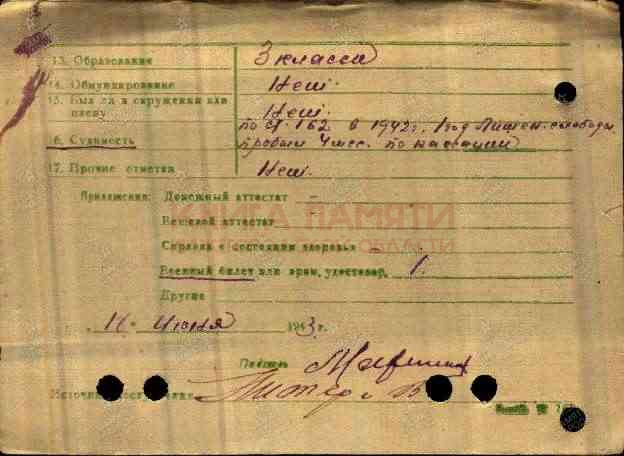 13. Образование 3 класса
14. Обмундирование Нет.
15. Был ли в окружении или плену Нет.
16. Судимость по ст. 162 в 1942г. 1 год Лишен. свободы
пробыл 4 мес. по кассации
17. Прочие отметки Нет.
Приложения: Денежный аттестат –
Вещевой аттестат
Справка о состоянии здоровья –
Военный билет или врем. удостовер. 1.
Другие
июня 1943 г.
Подпись
ПАМЯТИ